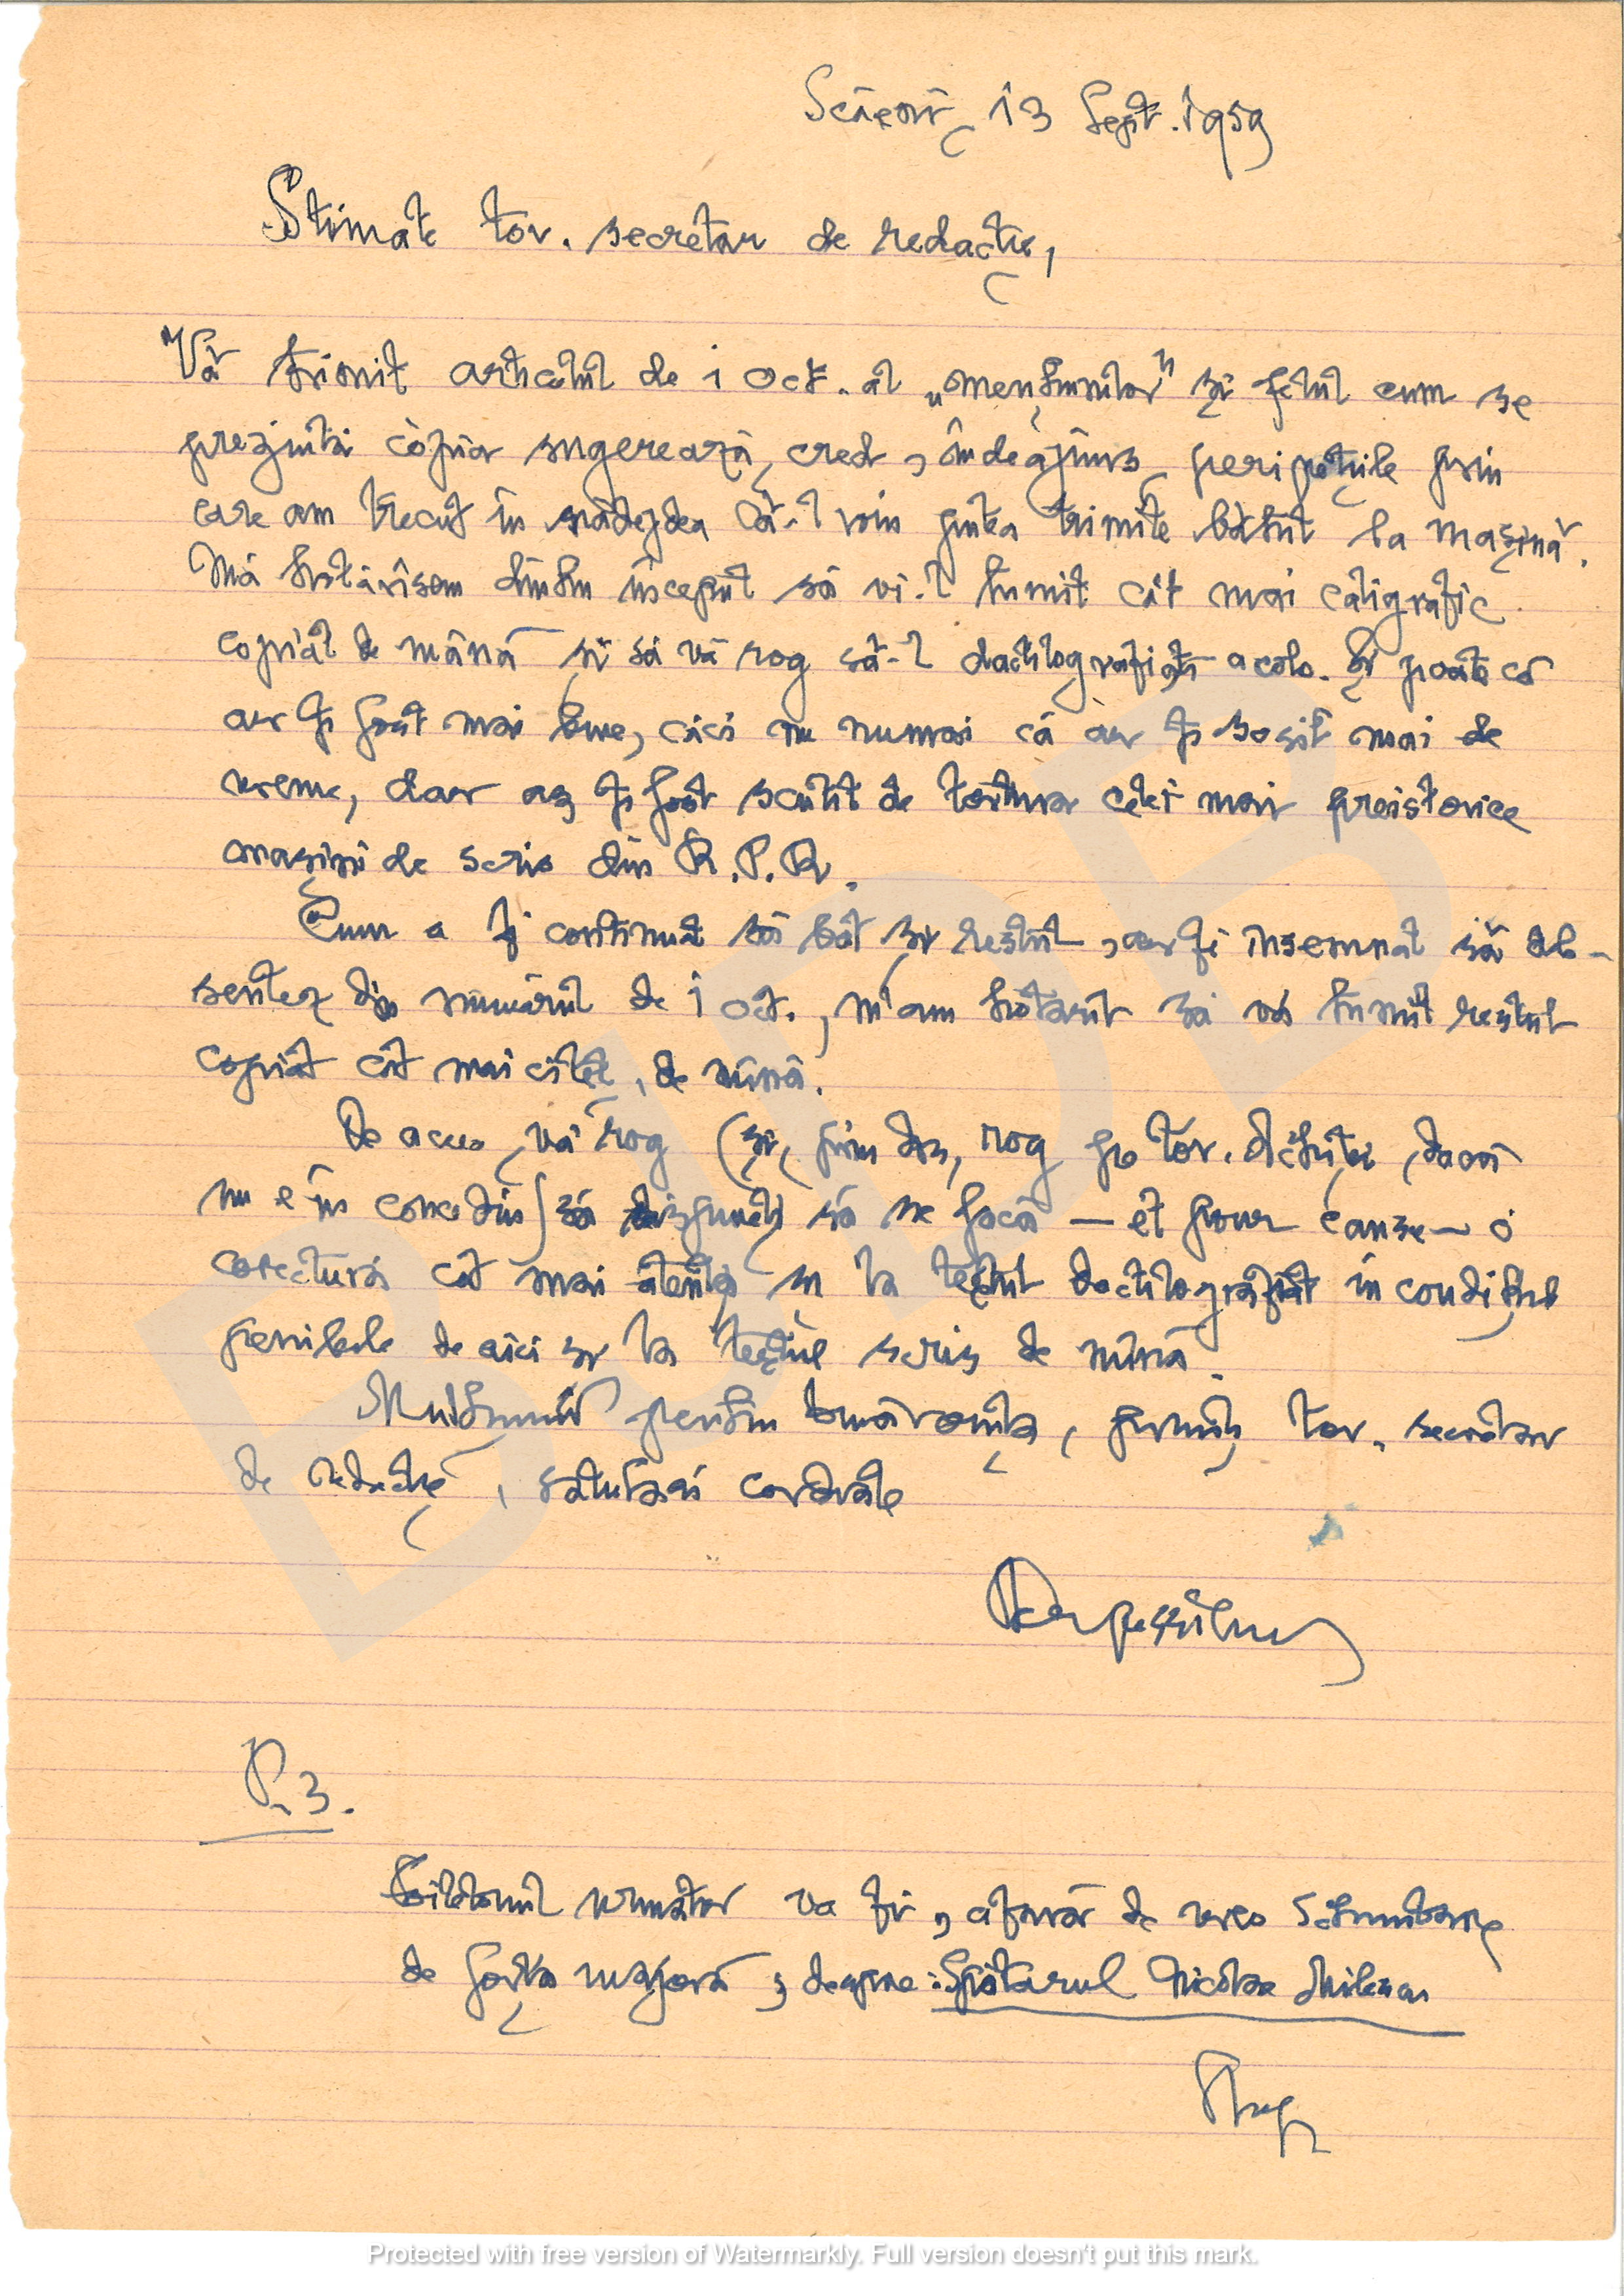 13 Sept. 1959
Stimate tov. secretar de redacție,
Vă trimit articolul de 1 Oct. al „mențiunilor” și felul cum se
prezintă copia sugerează, cred, îndeajuns peripețiile prin
care am trecut în nădejdea că-l voiu putea trimite bătut la mașină.
Mă hotărîsem dintru început să vi-l trimit cât mai caligrafic
copiat de mână și să vă rog să-l dactilografiați acolo. Și poate că
ar fi fost mai bine, căci nu numai că ar fi sosit mai de
vreme, dar aș fi fost scutit de tortura celei mai preistorice
mașini de scris din R.P.R.
Cum a fi continuat să bat și restul, ar fi însemnat să ab-
sentez din numărul de 1 oct., m'am hotărît să vă trimit restul
copiat cât mai citeț, de mînă.
De aceea, vă rog (și, prin dvs, rog pe tov. dacă
nu e în concediu) să dispuneți să se facă — et pour cause — o
corectură cât mai atentă și la textul dactilografiat în condițiile
penibile de aici și la textul scris de mînă.
Mulțumiri pentru bunăvoința, primiți, tov. secretar
de redacție, salutări cordiale
Perpessicius
P.S.
Foiletonul următor va fi, afară de vreo schimbare
de forță majoră, despre: Spătarul Nicolae Milescu